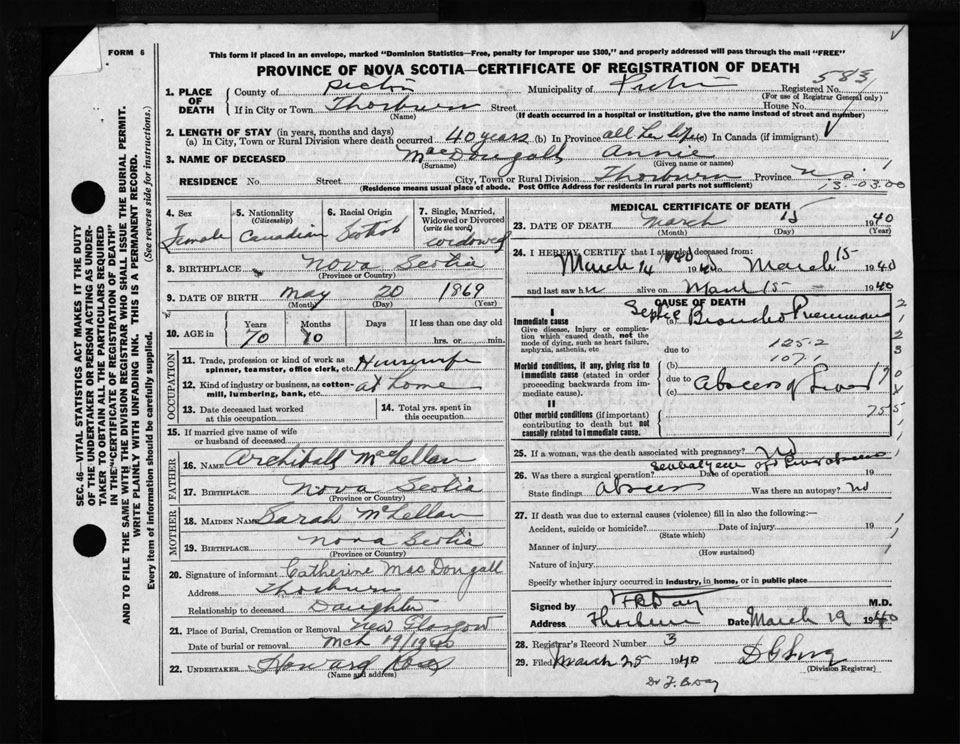 FORM 6
This form if placed in an envelope, marked "Dominion Statistics—Free, penalty for improper use $300," and properly addressed will pass through the mail "FREE"
PROVINCE OF NOVA SCOTIA—CERTIFICATE OF REGISTRATION OF DEATH
583
1. PLACE OF DEATH
County of Pictou Municipality of Pictou Registered No.
(For use of Registrar General only)
If in City or Town Thorburn Street House No.
(Name) (If death occurred in a hospital or institution, give the name instead of street and number)
2. LENGTH OF STAY (in years, months and days)
(a) In City, Town or Rural Division where death occurred 40 years (b) In Province all her life (c) In Canada (if immigrant)
3. NAME OF DECEASED MacDougall Annie
(Surname) (Given name or names)
RESIDENCE No. Street City, Town or Rural Division Thorburn Province N.S.
(Residence means usual place of abode. Post Office Address for residents in rural parts not sufficient)
13-03.00
4. Sex Female
5. Nationality (Citizenship) Canadian
6. Racial Origin Scotch
7. Single, Married, Widowed or Divorced (write the word) widowed
8. BIRTHPLACE Nova Scotia
(Province or Country)
9. DATE OF BIRTH May 20 1869
(Month) (Day) (Year)
10. AGE in Years Months Days If less than one day old
70 10 hrs. or min.
OCCUPATION
11. Trade, profession or kind of work as spinner, teamster, office clerk, etc. Housewife
12. Kind of industry or business, as cotton-mill, lumbering, bank, etc. at home
13. Date deceased last worked at this occupation
14. Total yrs. spent in this occupation
15. If married give name of wife or husband of deceased
FATHER
16. NAME Archibald McLellan
17. BIRTHPLACE Nova Scotia
(Province or Country)
MOTHER
18. MAIDEN NAME Sarah McLellan
19. BIRTHPLACE Nova Scotia
(Province or Country)
20. Signature of informant Catherine MacDougall
Address Thorburn
Relationship to deceased Daughter
21. Place of Burial, Cremation or Removal New Glasgow
Date of burial or removal Mch 19/1940
22. UNDERTAKER Howard Ross
(Name and address)
MEDICAL CERTIFICATE OF DEATH
23. DATE OF DEATH March 15 1940
(Month) (Day) (Year)
24. I HEREBY CERTIFY that I attended deceased from:
March 14 1940 to March 15 1940
and last saw her alive on March 15 1940
CAUSE OF DEATH
I
Immediate cause (a) Septic Broncho Pneumonia
Give disease, injury or complication which caused death, not the mode of dying, such as heart failure, asphyxia, asthenia, etc
due to
125.2
107.1
Morbid conditions, if any, giving rise to immediate cause (stated in order proceeding backwards from immediate cause).
(b)
due to Abscess of Liver
(c)
II
Other morbid conditions (if important) contributing to death but not causally related to immediate cause.
25. If a woman, was the death associated with pregnancy? No
26. Was there a surgical operation? Date of operation 19
State findings Abscess Was there an autopsy? No
27. If death was due to external causes (violence) fill in also the following:—
Accident, suicide or homicide? Date of injury 19
(State which)
Manner of injury
(How sustained)
Nature of injury
Specify whether injury occurred in industry, in home, or in public place
Signed by M.D.
Address Thorburn Date March 19 1940
28. Registrar's Record Number 3
29. Filed March 25 1940
(Division Registrar)
SEC. 46—VITAL STATISTICS ACT MAKES IT THE DUTY
OF THE UNDERTAKER OR PERSON ACTING AS UNDER-
TAKER TO OBTAIN ALL THE PARTICULARS REQUIRED
IN THE "CERTIFICATE OF REGISTRATION OF DEATH"
AND TO FILE THE SAME WITH THE DIVISION REGISTRAR WHO SHALL ISSUE THE BURIAL PERMIT.
WRITE PLAINLY WITH UNFADING INK. THIS IS A PERMANENT RECORD.
Every item of information should be carefully supplied. (See reverse side for instructions.)